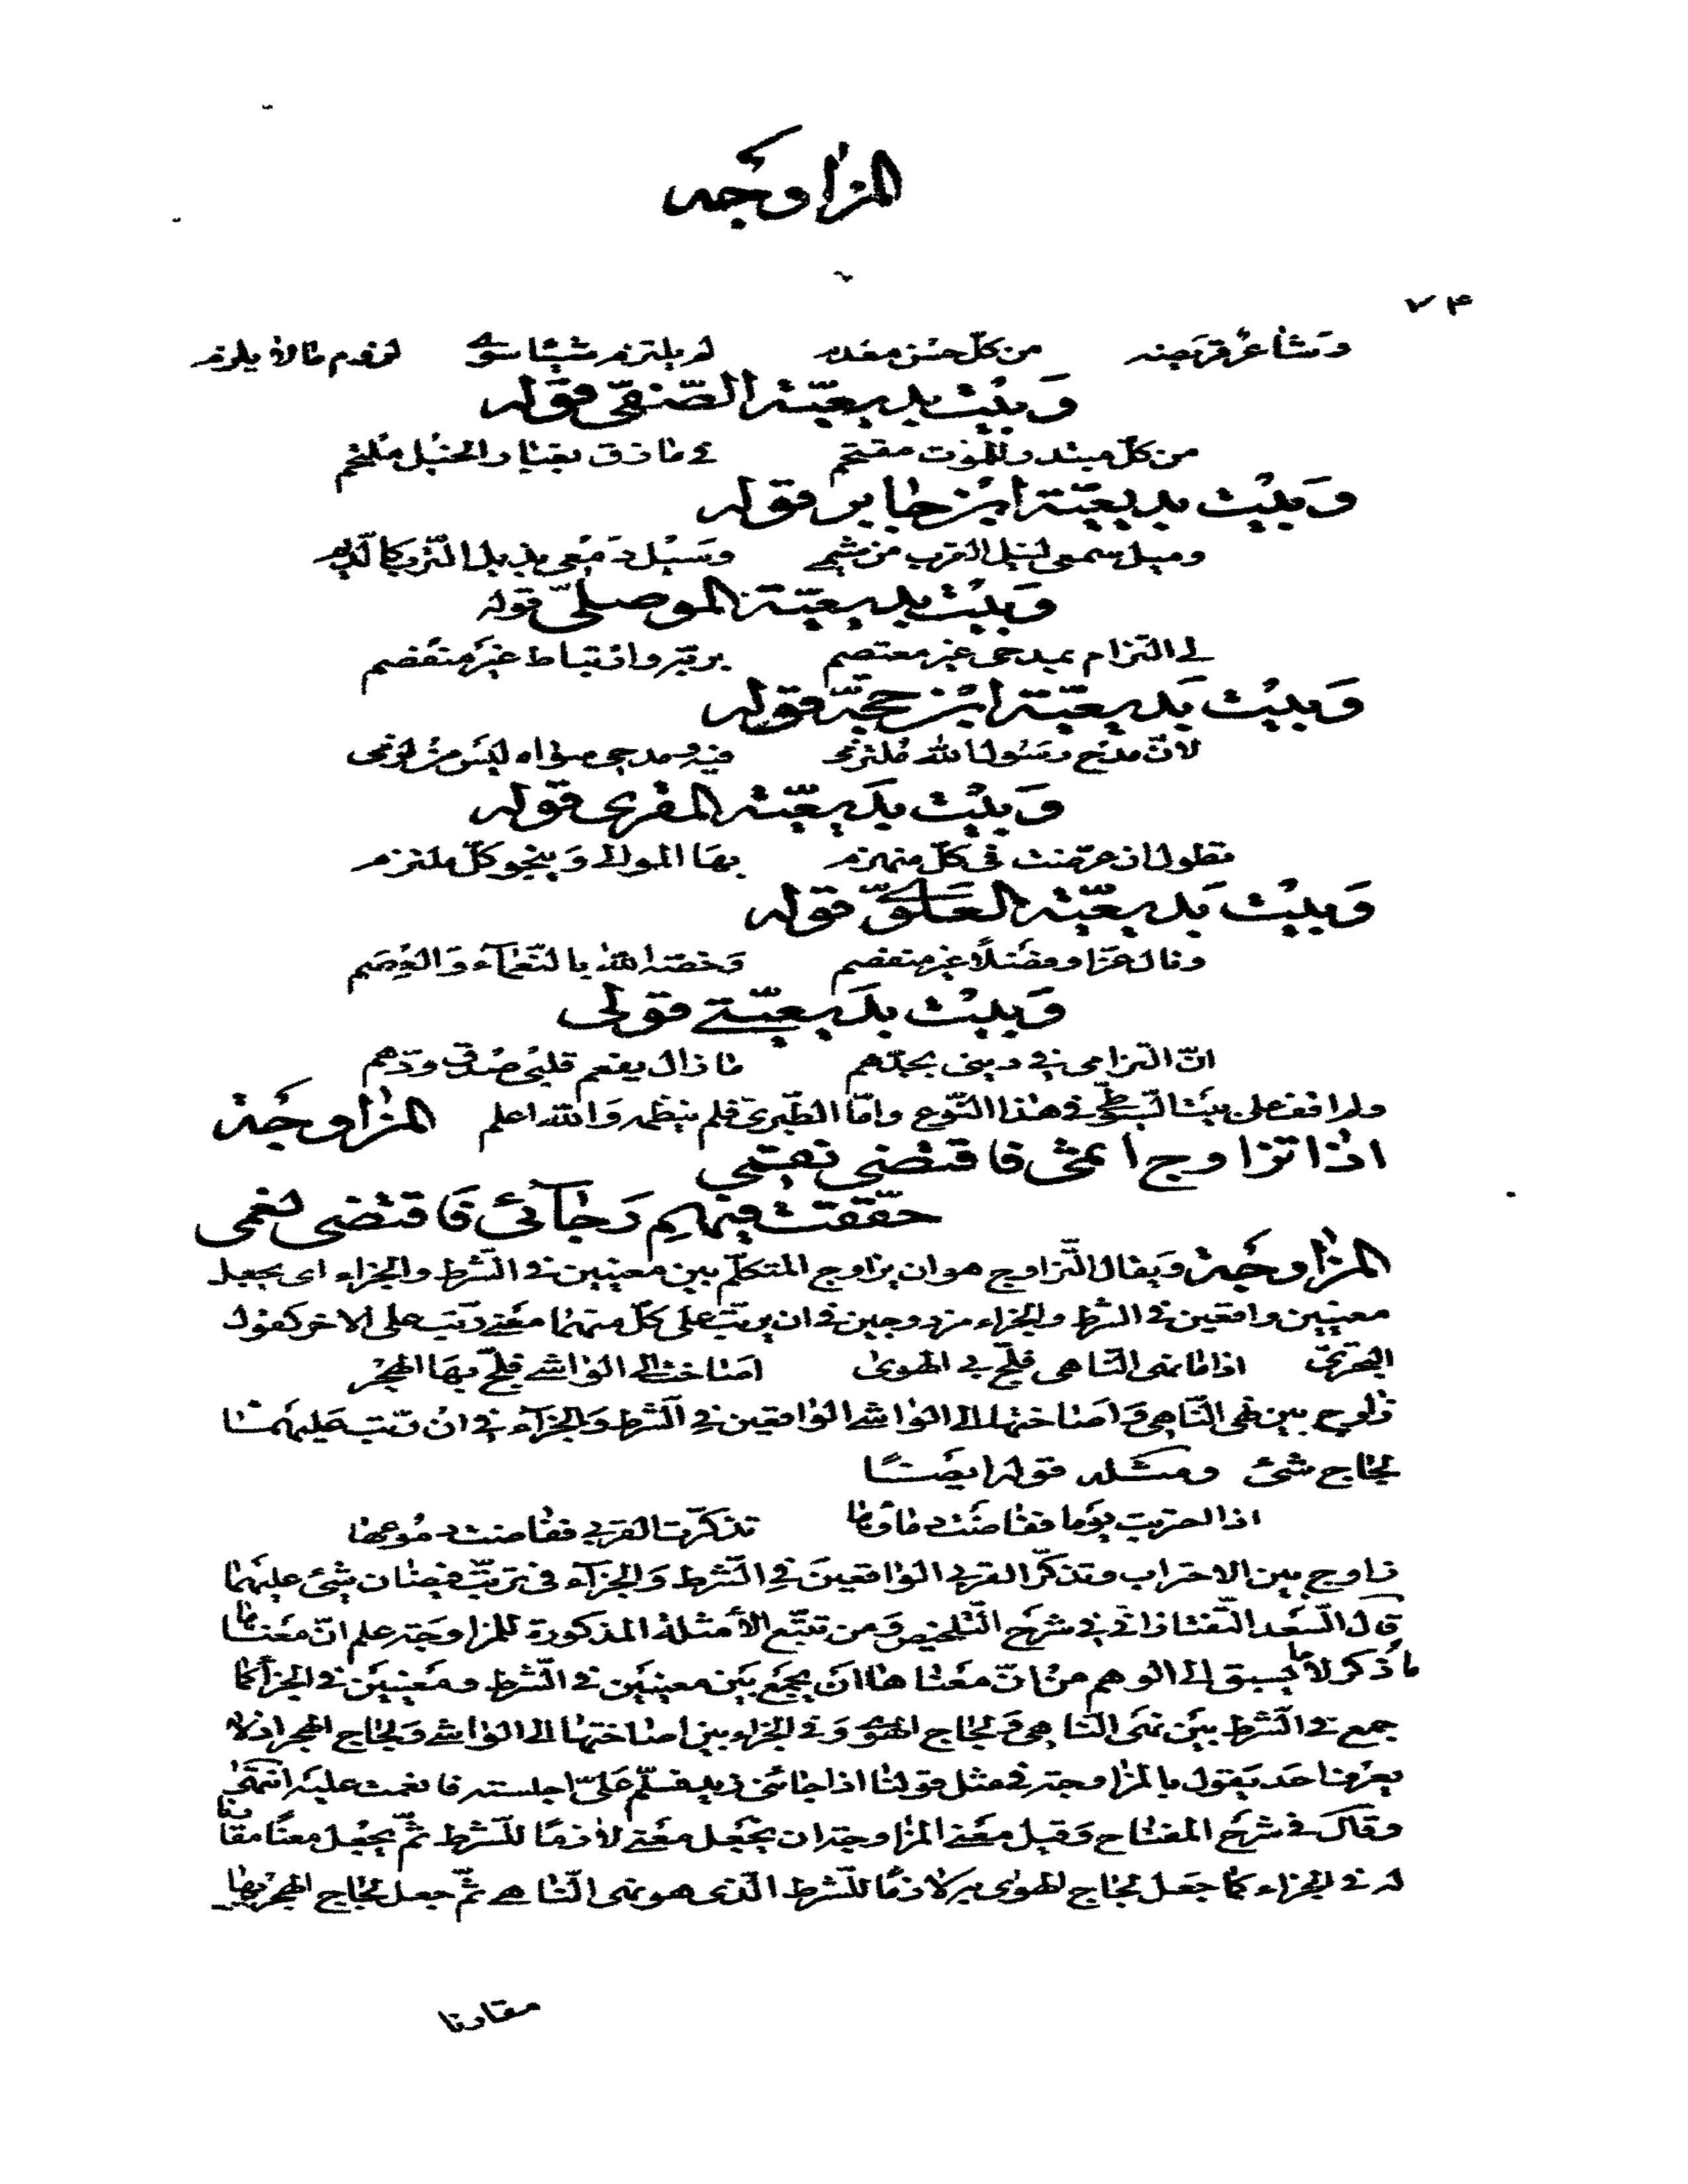 المزاوجه
٧٤
وشاعر قريضه من كلّ حسن معدم لم يلتزم شيئا سوى لزوم ما لا يلزم
وبيت بديعيّة الصّفيّ قوله
من كلّ مبتدر للموت مقتحم في مازق بغبار الحرب ملتحم
وبيت بديعيّة ابن جابر قوله
وميل سمعي لنيل القرب من شيمي وسيل دمعي بذيل الترب كالديم
وبيت بديعيّة الموصليّ قوله
لي التزام بمدحي غير معتصم بربّه وارتباط غير منفصم
وبيت بديعيّة ابن حجّة قوله
لانّ مدح رسول الله ملتزمي فيه ومدحي سواه ليس من لزمي
وبيت بديعيّة المقري قوله
بها الموالي وينجو كلّ ملتزم
وبيت بديعيّة العلويّ قوله
ونال عزا وفضلًا غير منفصم وخصّه الله بالنّعمآء والعصم
وبيت بديعيّتي قولي
انّ التزامي في ديني بحبّهم ما زال يفعم قلبي صدق ودّهم
ولم اقف على بيت السّيوطيّ في هذا النّوع وامّا الطّبريّ فلم ينظمه والله اعلم المزاوجة
اذا تزاوج اثمي فاقتضى نقمي
حقّقت فيهم رجآئي فاقتضى نعمي
المزاوجة ويقال التّزاوج هو ان يزاوج المتكلّم بين معنيين في الشّرط والجزاء اى يجعل
معنيين واقعين في الشرط والجزاء مزدوجين في ان يرتّب على كلّ منهما معنى رتّب على الاخر كقول
البحتريّ اذا ما نهى النّاهي فلجّ بي الهوى اصاخت الى الواشي فلجّ بها الهجر
زاوج بين نهى النّاهي واصاختها الى الواشى الواقعين في الشرط والجزآء في ان رتّب عليهما
لجاج شئ ومثله قوله ايضا
اذا احتربت يوما ففاضت دماؤها تذكّرت القربى ففاضت دموعها
زاوج بين الاحتراب وتذكّر القربى الواقعين في الشّرط والجزآء في ترتّب فيضان شئ عليهما
قال السّعد التّفتازانيّ في شرح التّلخيص ومن تتبّع الأمثلة المذكورة للمزاوجة علم انّ معناها
ما ذكر لا ما يسبق الى الوهم من انّ معناها ان يجمع بين معنيين في الشّرط ومعنيين في الجزآء كما
جمع في الشّرط بين نهى النّاهي ولجاج الهوى وفي الجزاء بين اصاختها الى الواشي ولجاج الهجر اذ لا
يعرف احد يقول بالمزاوجة في مثل قولنا اذا جائني زيد فسلّم علىّ اجلسته فانعمت عليه انتهى
وقال في شرح المفتاح وقيل معنى المزاوجة ان يجعل معنى لازمًا للشّرط ثمّ يجعل معنًا مقارنا
له في الجزاء كما جعل لجاج الهوى به لازمًا للشّرط الّذى هو نهى النّاهي ثمّ جعل لجاج الهجر بها
مقارنا